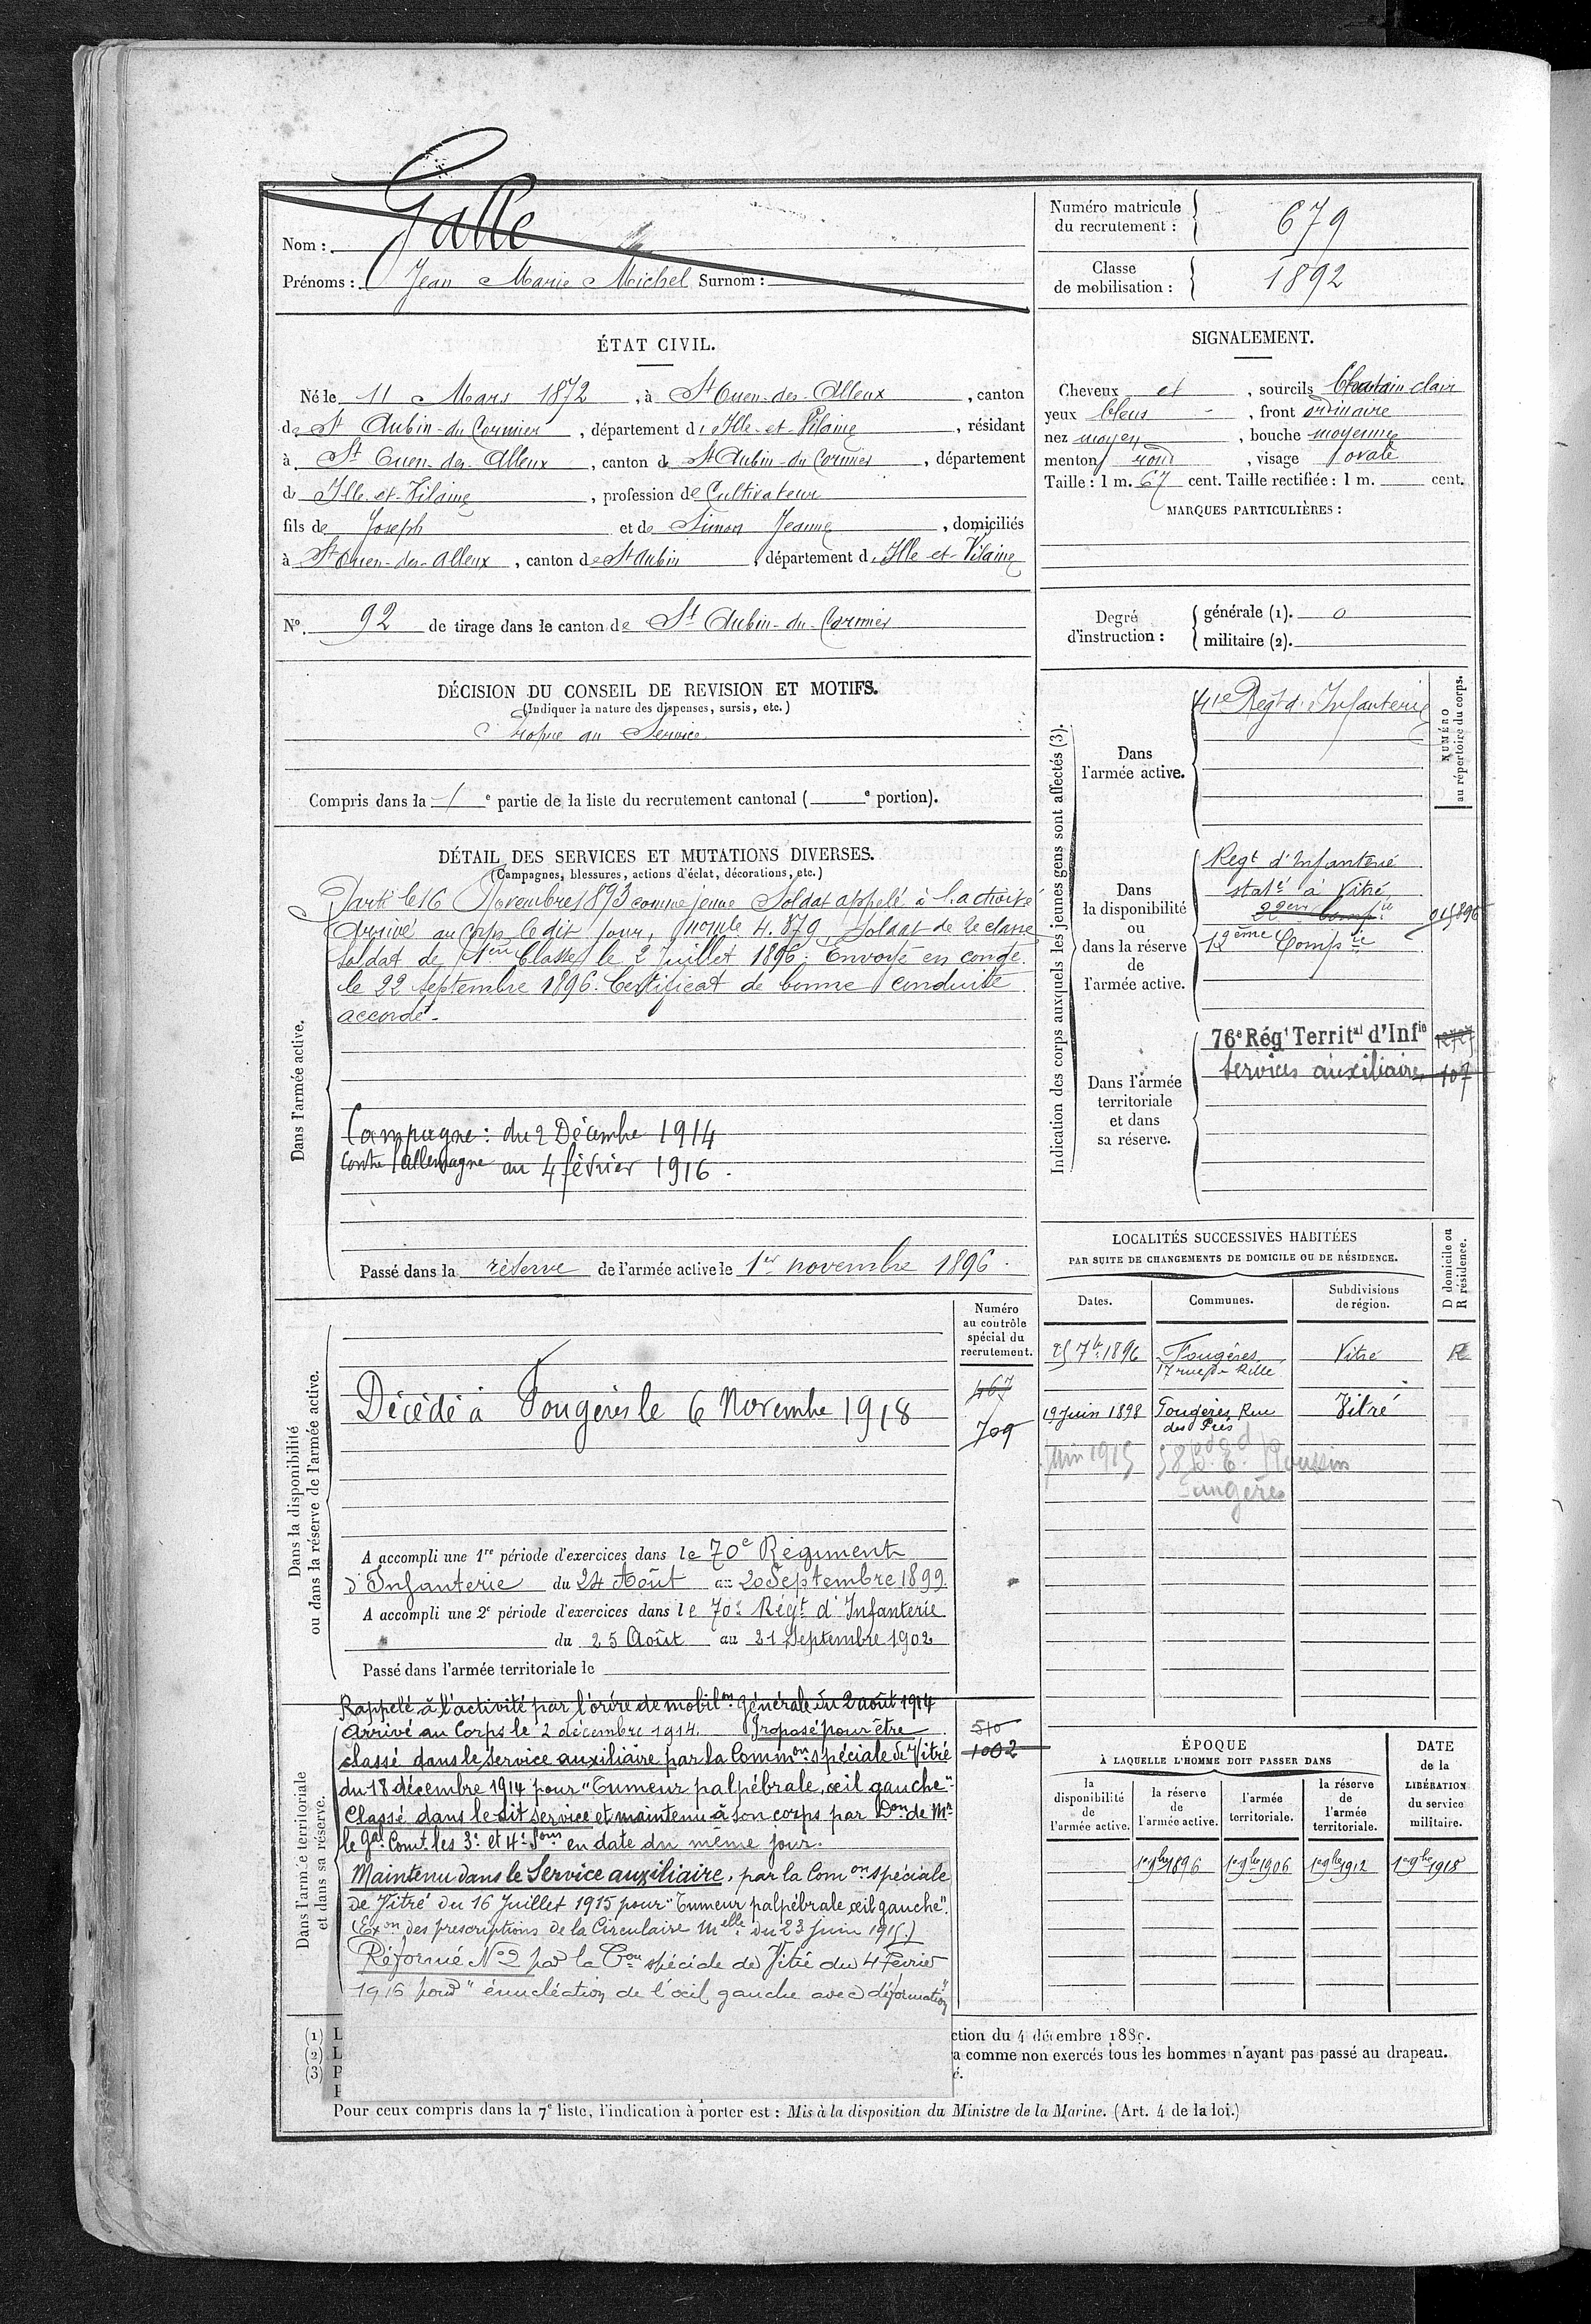 Nom : Galle
Prénoms : Jean Marie Michel Surnom :
Numéro matricule du recrutement : 679
Classe de mobilisation : 1892
ÉTAT CIVIL.
Né le 11 Mars 1872, à St Ouen-des-Alleux, canton
de St Aubin-du-Cormier, département d'Ille-et-Vilaine, résidant
à St Ouen-des-Alleux, canton de St Aubin-du-Cormier, département
d'Ille-et-Vilaine, profession de Cultivateur
fils de Joseph et de Simon Jeanne, domiciliés
à St Ouen-des-Alleux, canton de St Aubin, département d'Ille-et-Vilaine
No. 92 de tirage dans le canton de St Aubin-du-Cormier
SIGNALEMENT.
Cheveux et, sourcils Chatain clair
yeux bleus, front ordinaire
nez moyen, bouche moyenne
menton rond, visage ovale
Taille : 1 m. 67 cent. Taille rectifiée : 1 m. cent.
MARQUES PARTICULIÈRES :
Degré d'instruction :
générale (1). 0
militaire (2).
DÉCISION DU CONSEIL DE REVISION ET MOTIFS.
(Indiquer la nature des dispenses, sursis, etc.)
Propre au Service
Compris dans la 1e partie de la liste du recrutement cantonal ( e portion).
DÉTAIL DES SERVICES ET MUTATIONS DIVERSES.
(Campagnes, blessures, actions d'éclat, décorations, etc.)
Dans l'armée active.
Parti le 16 Novembre 1893 comme jeune Soldat appelé à l'activité
Arrivé au Corps le dit jour, nomle 4.879, Soldat de 2e classe
Soldat de 1ère Classe le 2 Juillet 1896. Envoyé en congé
le 22 septembre 1896. Certificat de bonne conduite
accordé.
Campagne : du 2 Décembre 1914
contre l'Allemagne au 4 février 1916.
Passé dans la réserve de l'armée active le 1er novembre 1896.
Indication des corps auxquels les jeunes gens sont affectés (3).
NUMÉRO au répertoire du corps.
Dans l'armée active.
41e Regt d'Infanterie
Dans la disponibilité ou dans la réserve de l'armée active.
Regt d'Infanterie
staté à Vitré
22em Compie
12ème Compie
Dans l'armée territoriale et dans sa réserve.
76e Régt Territal d'Infie
Services auxiliaires 107
LOCALITÉS SUCCESSIVES HABITÉES
PAR SUITE DE CHANGEMENTS DE DOMICILE OU DE RÉSIDENCE.
Dates. Communes. Subdivisions de région. D domicile ou R résidence.
25 7bre 1896 Fougères Vitré R
17 rue de Rillé
19 Juin 1898 Fougères Rue Vitré
des Prés
Juin 1915 58 Bd E. Roussin
Fougères
Dans la disponibilité ou dans la réserve de l'armée active.
Numéro au contrôle spécial du recrutement.
467
709
Décédé à Fougères le 6 Novembre 1918
A accompli une 1re période d'exercices dans le 70e Régiment
d'Infanterie du 24 Août au 20 Septembre 1899
A accompli une 2e période d'exercices dans le 70e Régt d'Infanterie
du 25 Août au 21 Septembre 1902
Passé dans l'armée territoriale le
Dans l'armée territoriale et dans sa réserve.
Rappelé à l'activité par l'ordre de mobilon générale du 2 août 1914
Arrivé au Corps le 2 décembre 1914. Proposé pour être
classé dans le service auxiliaire par la Common spéciale de Vitré
du 18 décembre 1914 pour "Tumeur palpébrale, œil gauche".
Classé dans le dit service et maintenu à son corps par Don de Mr
le Gal Comt les 3e et 4e Sons en date du même jour.
Maintenu dans le Service auxiliaire, par la Comon spéciale
de Vitré du 16 Juillet 1915 pour "Tumeur palpébrale œil gauche".
(Exon des prescriptions de la Circulaire Melle du 23 juin 1915.)
Réformé No 2 par la Con spéciale de Vitré du 4 Février
1916 pour "énucléation de l'œil gauche avec déformation"
510
1002
ÉPOQUE
À LAQUELLE L'HOMME DOIT PASSER DANS
la disponibilité de l'armée active. la réserve de l'armée active. l'armée territoriale. la réserve de l'armée territoriale.
DATE de la LIBÉRATION du service militaire.
1er 9bre 1896 1er 9bre 1906 1er 9bre 1912 1er 9bre 1918
(1) L
ction du 4 décembre 1889.
(2) L
a comme non exercés tous les hommes n'ayant pas passé au drapeau.
(3) P
é.
Pour ceux compris dans la 7e liste, l'indication à porter est : Mis à la disposition du Ministre de la Marine. (Art. 4 de la loi.)